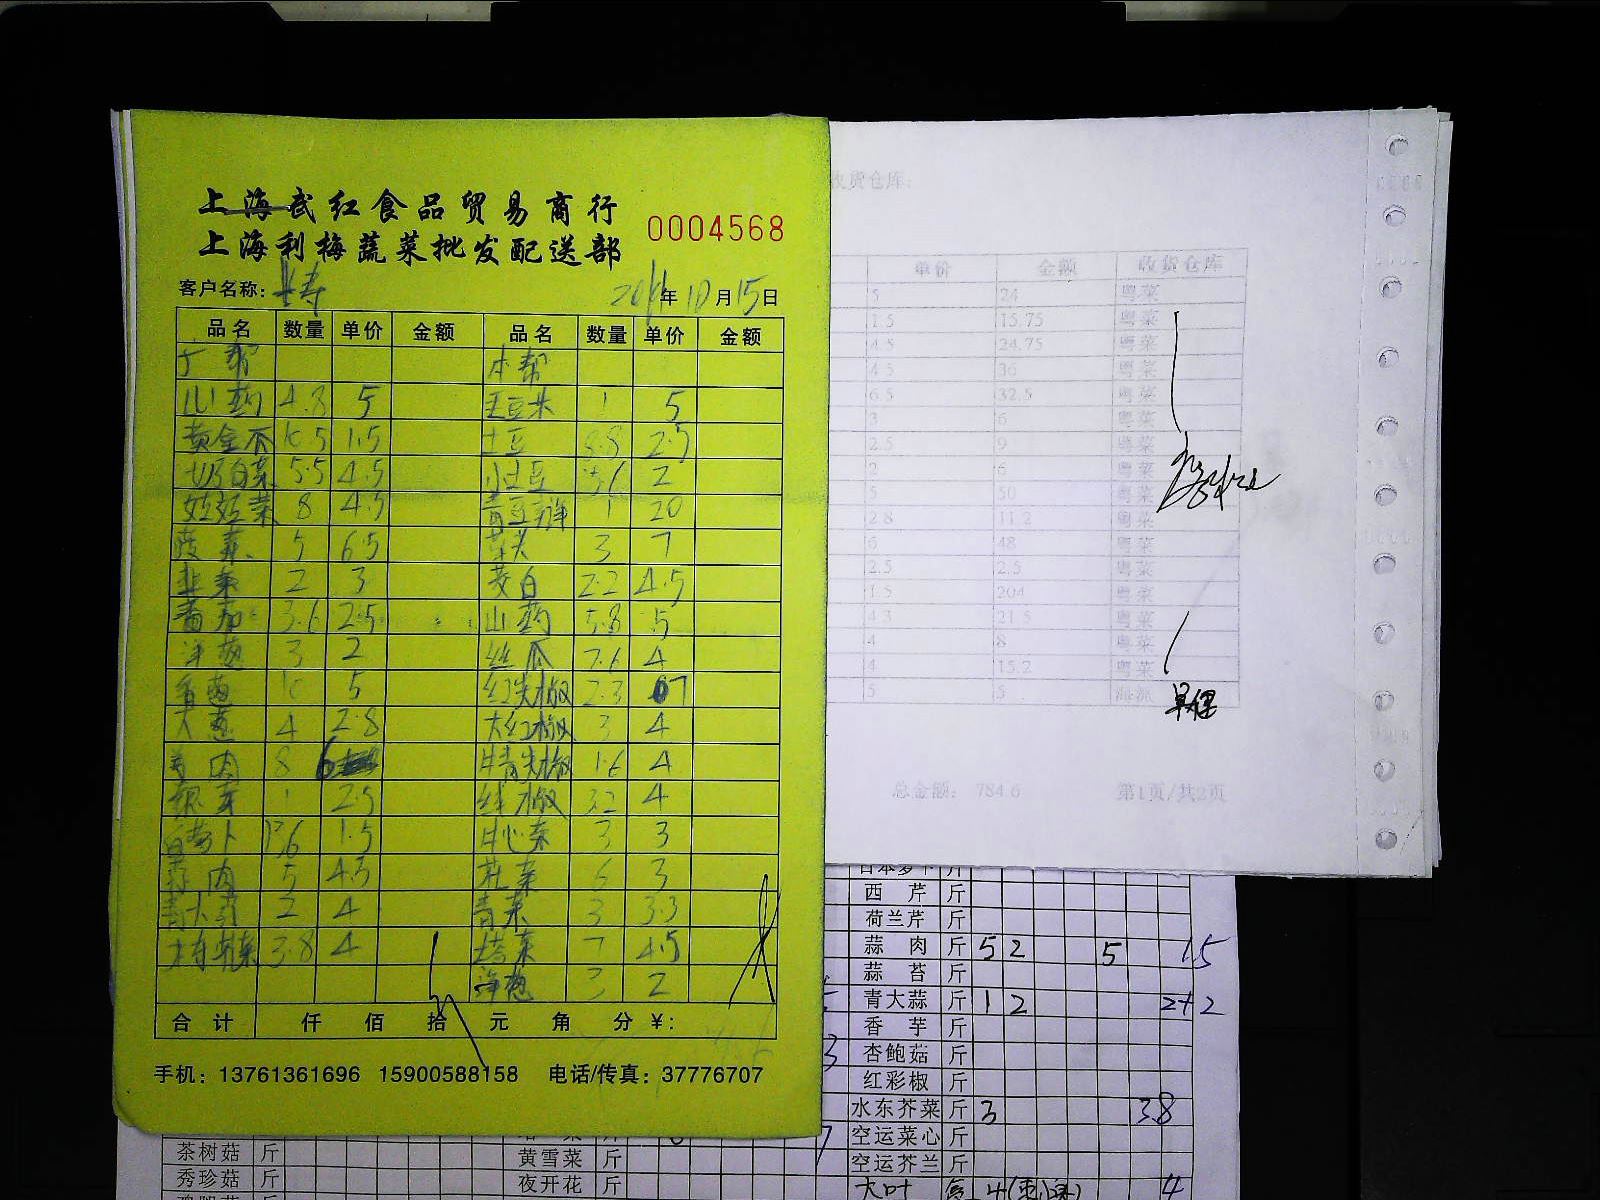 上海武红食品贸易商行
上海利梅蔬菜批发配送部
0004568
客户名称:
年 10 月 15 日
品名 数量 单价 金额 品名 数量 单价 金额
广帮 本帮
山药 4.8 5 玉豆米 1 5
黄金瓜 1.5 土豆 8.8 2.5
奶白菜 5.5 4.5 小土豆 2
娃娃菜 8 4.5 青豆瓣 1 20
菠菜 5 6.5 3 7
韭菜 2 3 茭白 2.2 4.5
番茄 3.6 2.5 山药 5.8 5
洋葱 3 2 丝瓜 7.6 4
香葱 5 红尖椒 2.3 7
大葱 4 2.8 大红椒 3 4
姜肉 8 6 青尖椒 1.6 4
银芽 1 2.5 线椒 3.2 4
白萝卜 1.5 牛心菜 3 3
蒜肉 5 4.5 杜菜 6 3
青大蒜 2 4 青菜 3 3.3
水东芥菜 3.8 4 塔菜 7 4.5
洋葱 3 2
合计 仟 佰 拾 元 角 分 ¥:
手机: 13761361696 15900588158 电话/传真: 37776707
收货仓库:
单价 金额 收货仓库
5 24 粤菜
1.5 15.75 粤菜
4.5 24.75 粤菜
4.5 36 粤菜
6.5 32.5 粤菜
3 6 粤菜
2.5 9 粤菜
2 6 粤菜
5 50 粤菜
2.8 11.2 粤菜
6 48 粤菜
2.5 2.5 粤菜
1.5 20.4 粤菜
4.3 21.5 粤菜
4 8 粤菜
4 15.2 粤菜
5 5 海派
总金额: 784.6 第1页/共2页
日本萝卜 斤
西芹 斤
荷兰芹 斤
蒜肉 斤 5 2 5 15
蒜苔 斤
青大蒜 斤 1 2 2+2
香芋 斤
杏鲍菇 斤
红彩椒 斤
水东芥菜 斤 3 3.8
空运菜心 斤
空运芥兰 斤
大叶 4
茶树菇 斤
秀珍菇 斤
黄雪菜 斤
夜开花 斤